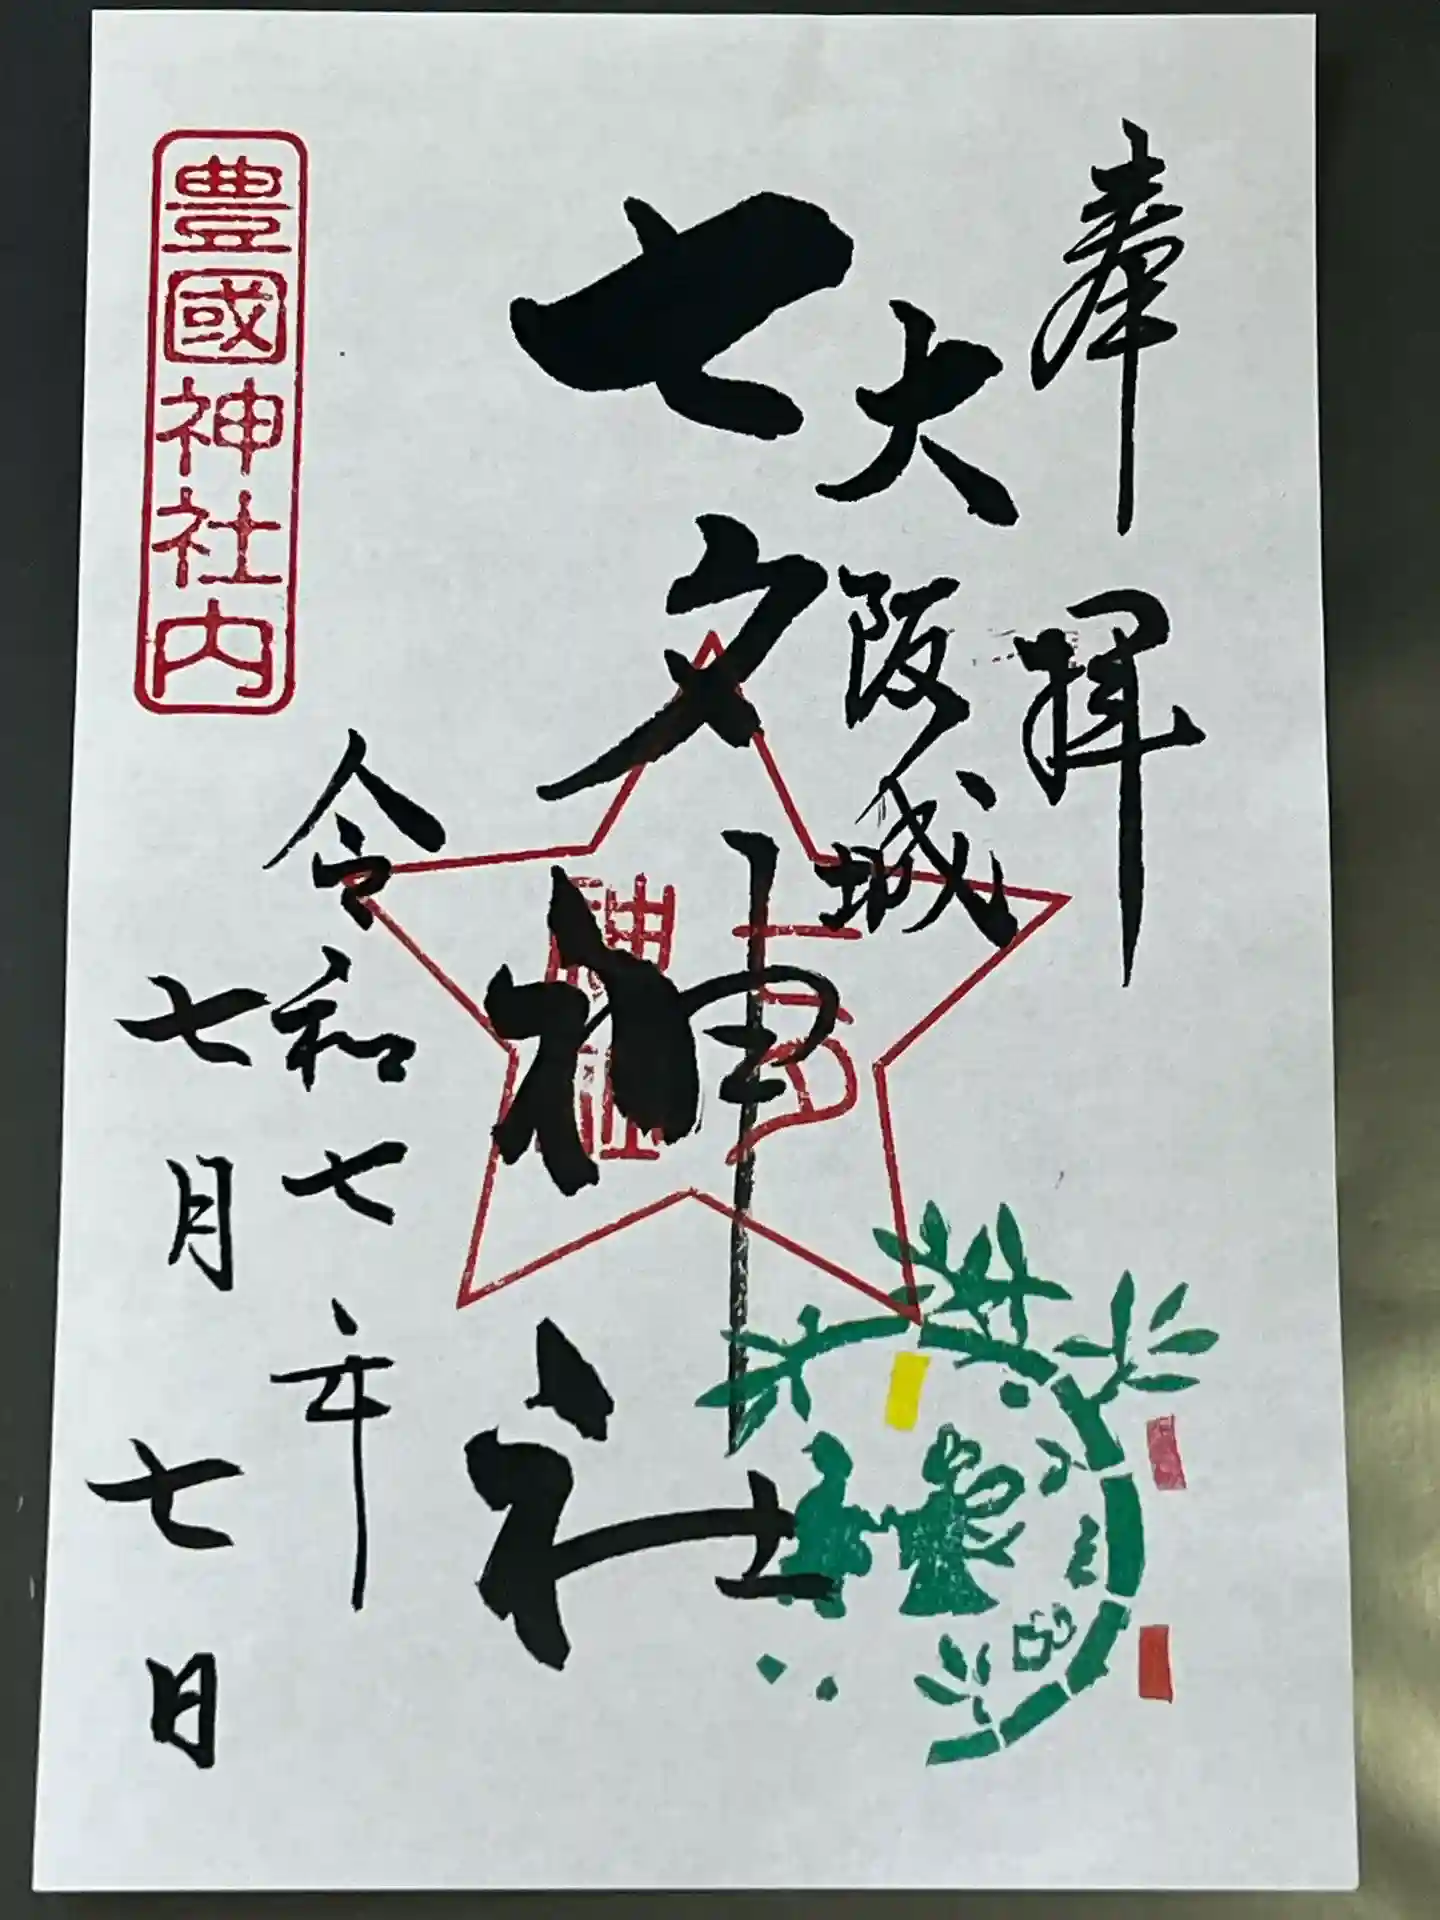 奉拝
大阪城
七夕神社
七夕
神社
令和七年
七月七日
豊國神社内